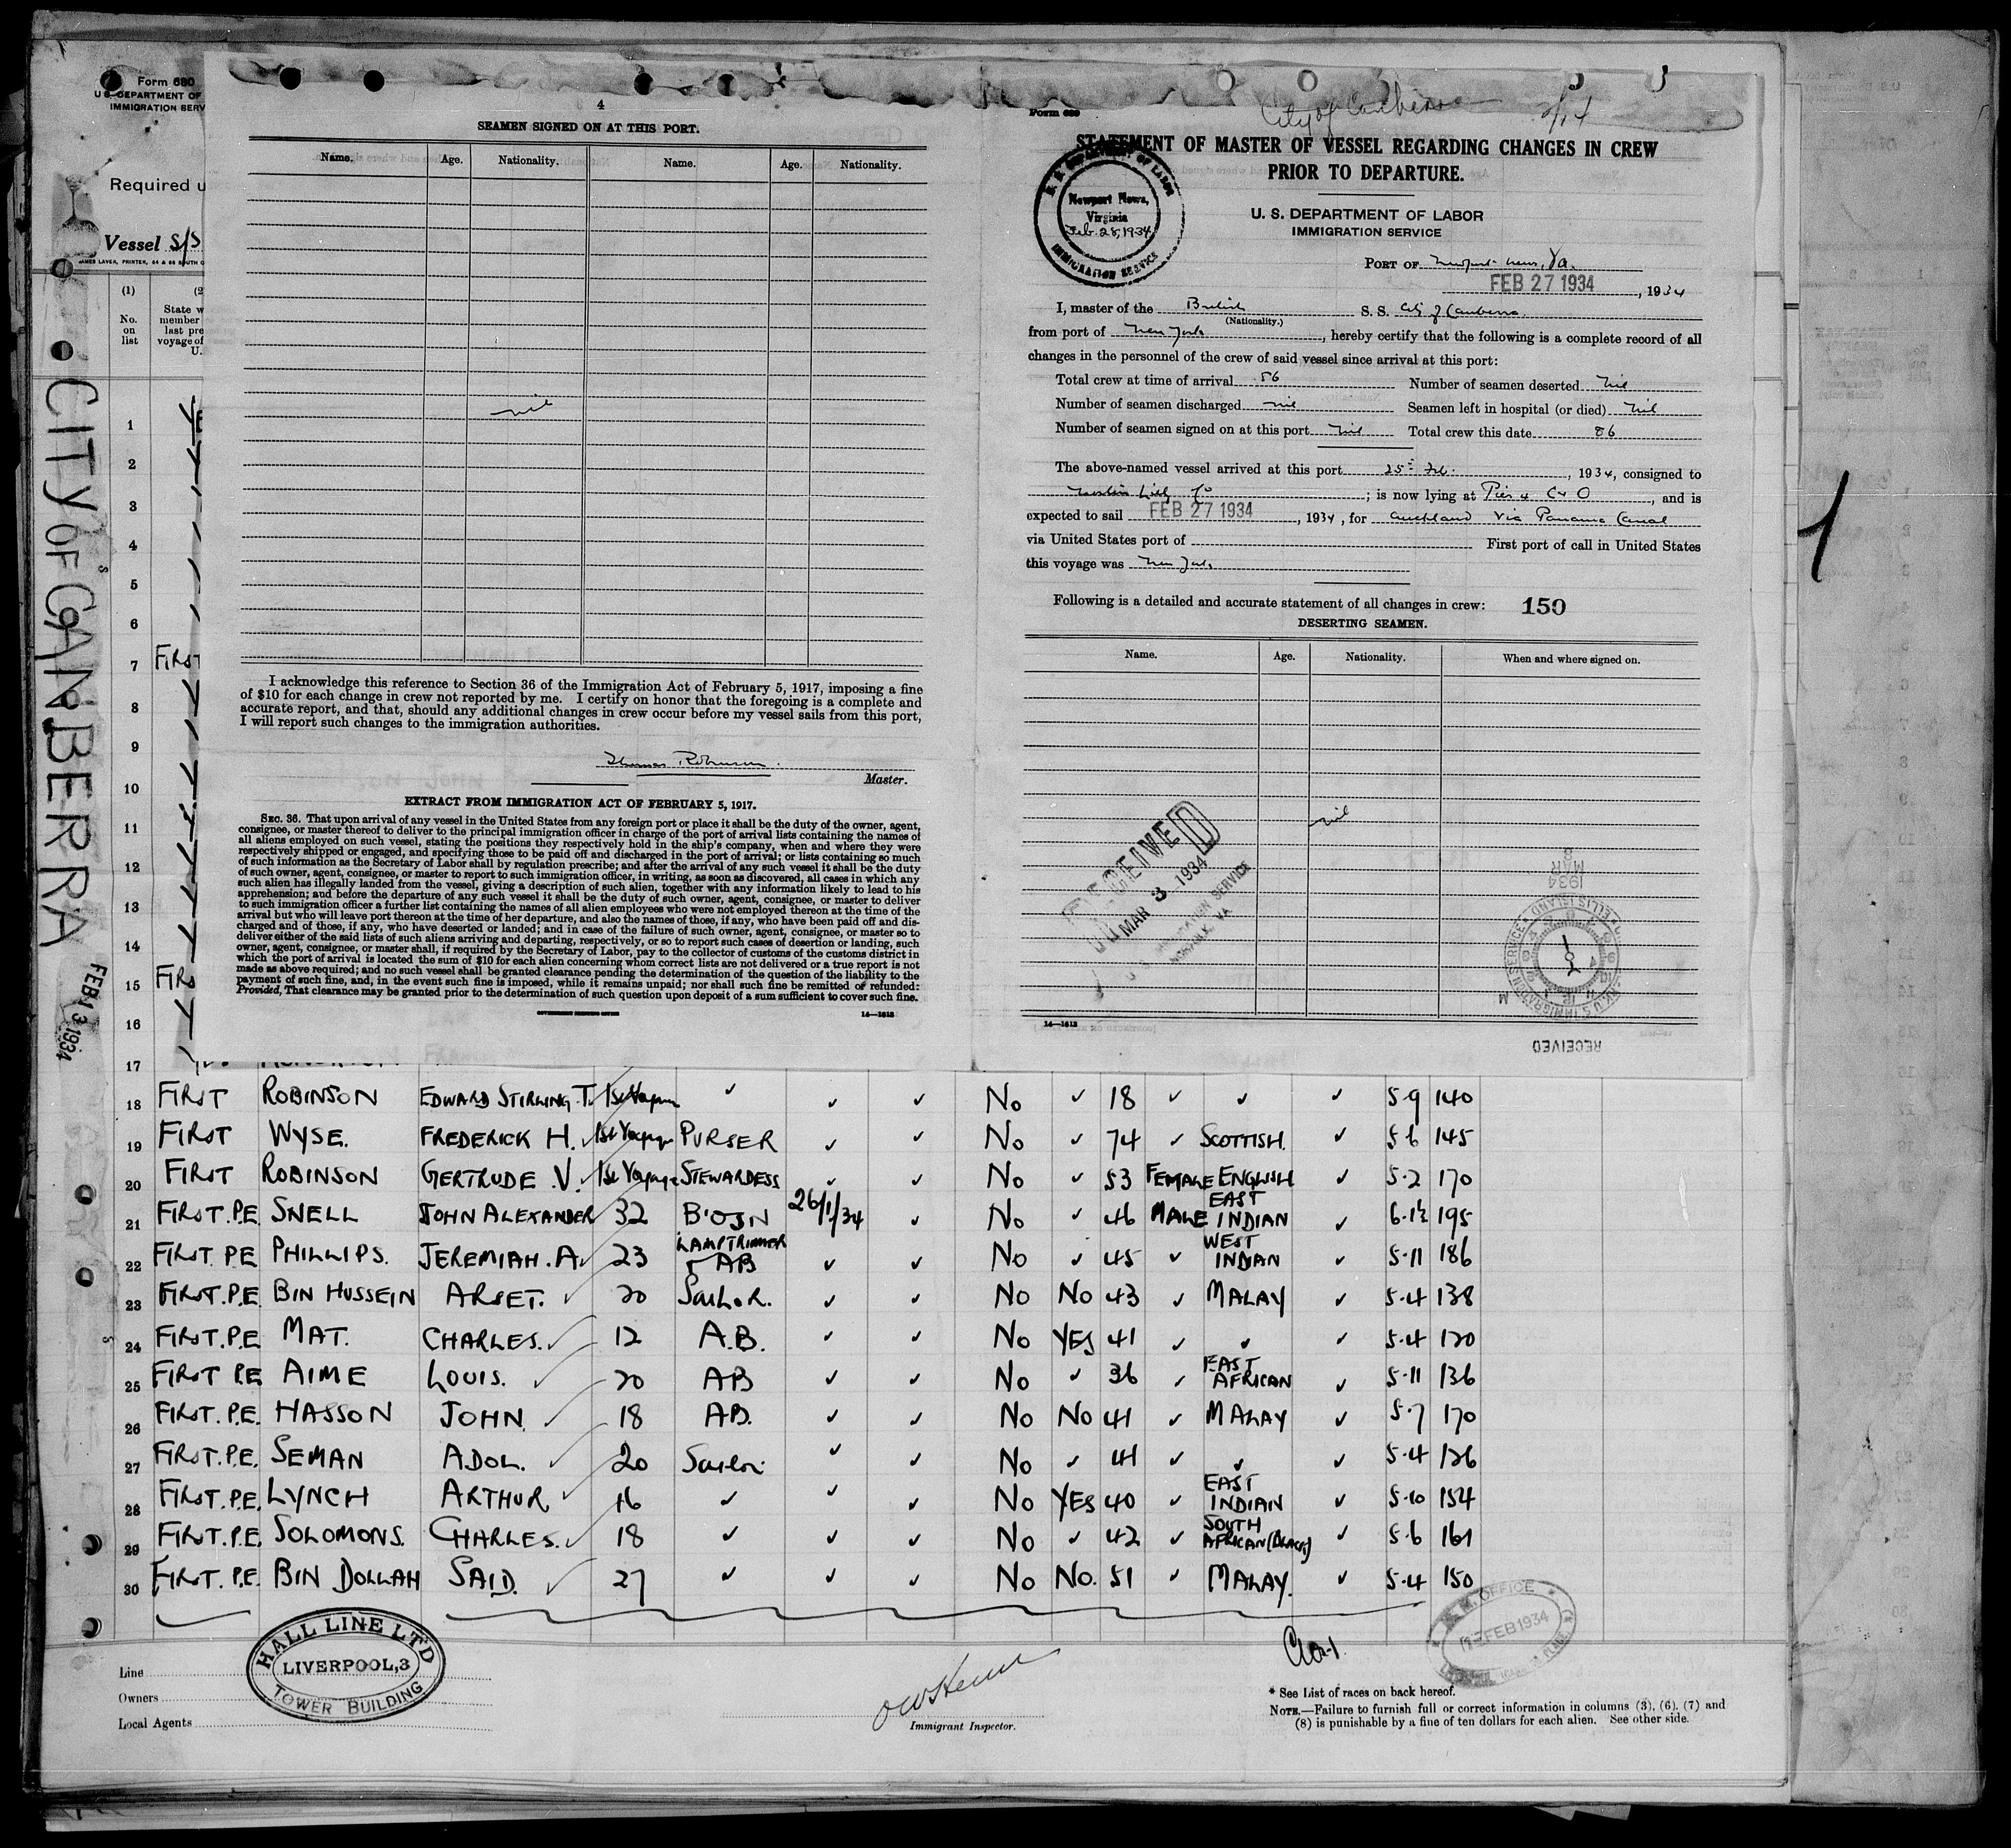 Form 680
U. S. DEPARTMENT OF
IMMIGRATION SERV
Required u
Vessel S/S
JAMES LAVER, PRINTER,
(1)
No.
on
list
(2
State w
member
last pre
voyage of
U.
CITY OF CANBERRA
FEB 13 1934
1
2
3
4
5
6
7 FIRST
8
9
10
11
12
13
14
15 FIRS
16
17
4
SEAMEN SIGNED ON AT THIS PORT.
Name. Age. Nationality. Name. Age. Nationality.
nil
I acknowledge this reference to Section 36 of the Immigration Act of February 5, 1917, imposing a fine
of $10 for each change in crew not reported by me. I certify on honor that the foregoing is a complete and
accurate report, and that, should any additional changes in crew occur before my vessel sails from this port,
I will report such changes to the immigration authorities.
Thomas Robinson.
Master.
EXTRACT FROM IMMIGRATION ACT OF FEBRUARY 5, 1917.
SEC. 36. That upon arrival of any vessel in the United States from any foreign port or place it shall be the duty of the owner, agent,
consignee, or master thereof to deliver to the principal immigration officer in charge of the port of arrival lists containing the names of
all aliens employed on such vessel, stating the positions they respectively hold in the ship's company, when and where they were
respectively shipped or engaged, and specifying those to be paid off and discharged in the port of arrival; or lists containing so much
of such information as the Secretary of Labor shall by regulation prescribe; and after the arrival of any such vessel it shall be the duty
of such owner, agent, consignee, or master to report to such immigration officer, in writing, as soon as discovered, all cases in which any
such alien has illegally landed from the vessel, giving a description of such alien, together with any information likely to lead to his
apprehension; and before the departure of any such vessel it shall be the duty of such owner, agent, consignee, or master to deliver
to such immigration officer a further list containing the names of all alien employees who were not employed thereon at the time of the
arrival but who will leave port thereon at the time of her departure, and also the names of those, if any, who have been paid off and dis-
charged and of those, if any, who have deserted or landed; and in case of the failure of such owner, agent, consignee, or master so to
deliver either of the said lists of such aliens arriving and departing, respectively, or so to report such cases of desertion or landing, such
owner, agent, consignee, or master shall, if required by the Secretary of Labor, pay to the collector of customs of the customs district in
which the port of arrival is located the sum of $10 for each alien concerning whom correct lists are not delivered or a true report is not
made as above required; and no such vessel shall be granted clearance pending the determination of the question of the liability to the
payment of such fine, and, in the event such fine is imposed, while it remains unpaid; nor shall such fine be remitted or refunded:
Provided, That clearance may be granted prior to the determination of such question upon deposit of a sum sufficient to cover such fine.
GOVERNMENT PRINTING OFFICE 14—1613
City of Canberra 2/14
Form 689
STATEMENT OF MASTER OF VESSEL REGARDING CHANGES IN CREW
PRIOR TO DEPARTURE.
U. S. DEPARTMENT OF LABOR
IMMIGRATION SERVICE
U. S. DEPARTMENT OF LABOR
Newport News,
Virginia
Feb. 28, 1934
IMMIGRATION SERVICE
PORT OF Newport News, Va.
FEB 27 1934, 1934
I, master of the British S. S. City of Canberra.
(Nationality.)
from port of New York, hereby certify that the following is a complete record of all
changes in the personnel of the crew of said vessel since arrival at this port:
Total crew at time of arrival 86 Number of seamen deserted Nil
Number of seamen discharged nil Seamen left in hospital (or died) Nil
Number of seamen signed on at this port Nil Total crew this date 86
The above-named vessel arrived at this port 25th Feb., 1934, consigned to
Co; is now lying at Pier 4 C & O, and is
expected to sail FEB 27 1934, 1934, for Auckland via Panama Canal
via United States port of First port of call in United States
this voyage was New York
Following is a detailed and accurate statement of all changes in crew: 150
DESERTING SEAMEN.
Name. Age. Nationality. When and where signed on.
nil
RECEIVED
MAR 3 1934
U. S. IMMIGRATION SERVICE
NORFOLK, VA
1934
MAR
8
U. S. IMMIGRATION SERVICE ELLIS ISLAND
RECEIVED
14—1613
1
18 FIRST ROBINSON EDWARD STIRLING T. 1st Voyage ✓ ✓ ✓ No ✓ 18 ✓ ✓ ✓ 5·9 140
19 FIRST WYSE. FREDERICK H. 1st Voyage PURSER ✓ ✓ No ✓ 74 ✓ SCOTTISH. ✓ 5 6 145
20 FIRST ROBINSON GERTRUDE V. 1st Voyage STEWARDESS ✓ ✓ No ✓ 53 FEMALE ENGLISH ✓ 5·2 170
21 FIRST. P.E. SNELL JOHN ALEXANDER 32 B'OSN 26/1/34 ✓ No ✓ 46 MALE EAST INDIAN ✓ 6·1½ 195
22 FIRST. P.E PHILLIPS. JEREMIAH. A. 23 LAMPTRIMMER & AB ✓ ✓ No ✓ 45 ✓ WEST INDIAN ✓ 5·11 186
23 FIRST. P.E. BIN HUSSEIN ARSET. ✓ 20 SAILOR. ✓ ✓ No No 43 ✓ MALAY ✓ 5·4 138
24 FIRST. P.E MAT. CHARLES. ✓ 12 A.B. ✓ ✓ No YES 41 ✓ ✓ ✓ 5·4 120
25 FIRST P.E AIME LOUIS. ✓ 20 AB ✓ ✓ No ✓ 36 ✓ EAST AFRICAN ✓ 5·11 136
26 FIRST. P.E. HASSON JOHN. ✓ 18 AB. ✓ ✓ No No 41 ✓ MALAY ✓ 5·7 170
27 FIRST. P.E. SEMAN ADOL. ✓ 20 Sailor ✓ ✓ No ✓ 41 ✓ ✓ ✓ 5·4 126
28 FIRST. P.E. LYNCH ARTHUR ✓ 16 ✓ ✓ ✓ No YES 40 ✓ EAST INDIAN ✓ 5·10 154
29 FIRST. P.E. SOLOMONS. CHARLES. ✓ 18 ✓ ✓ ✓ No ✓ 42 ✓ SOUTH AFRICAN (BLACK) ✓ 5·6 161
30 FIRST. P.E. BIN DOLLAH SAID. ✓ 27 ✓ ✓ ✓ No No. 51 ✓ MALAY. ✓ 5·4 150
Line
Owners
Local Agents
HALL LINE LTD
LIVERPOOL, 3
TOWER BUILDING
Immigrant Inspector.
OFFICE
FEB 1934
* See List of races on back hereof.
NOTE.—Failure to furnish full or correct information in columns (3), (6), (7) and
(8) is punishable by a fine of ten dollars for each alien. See other side.